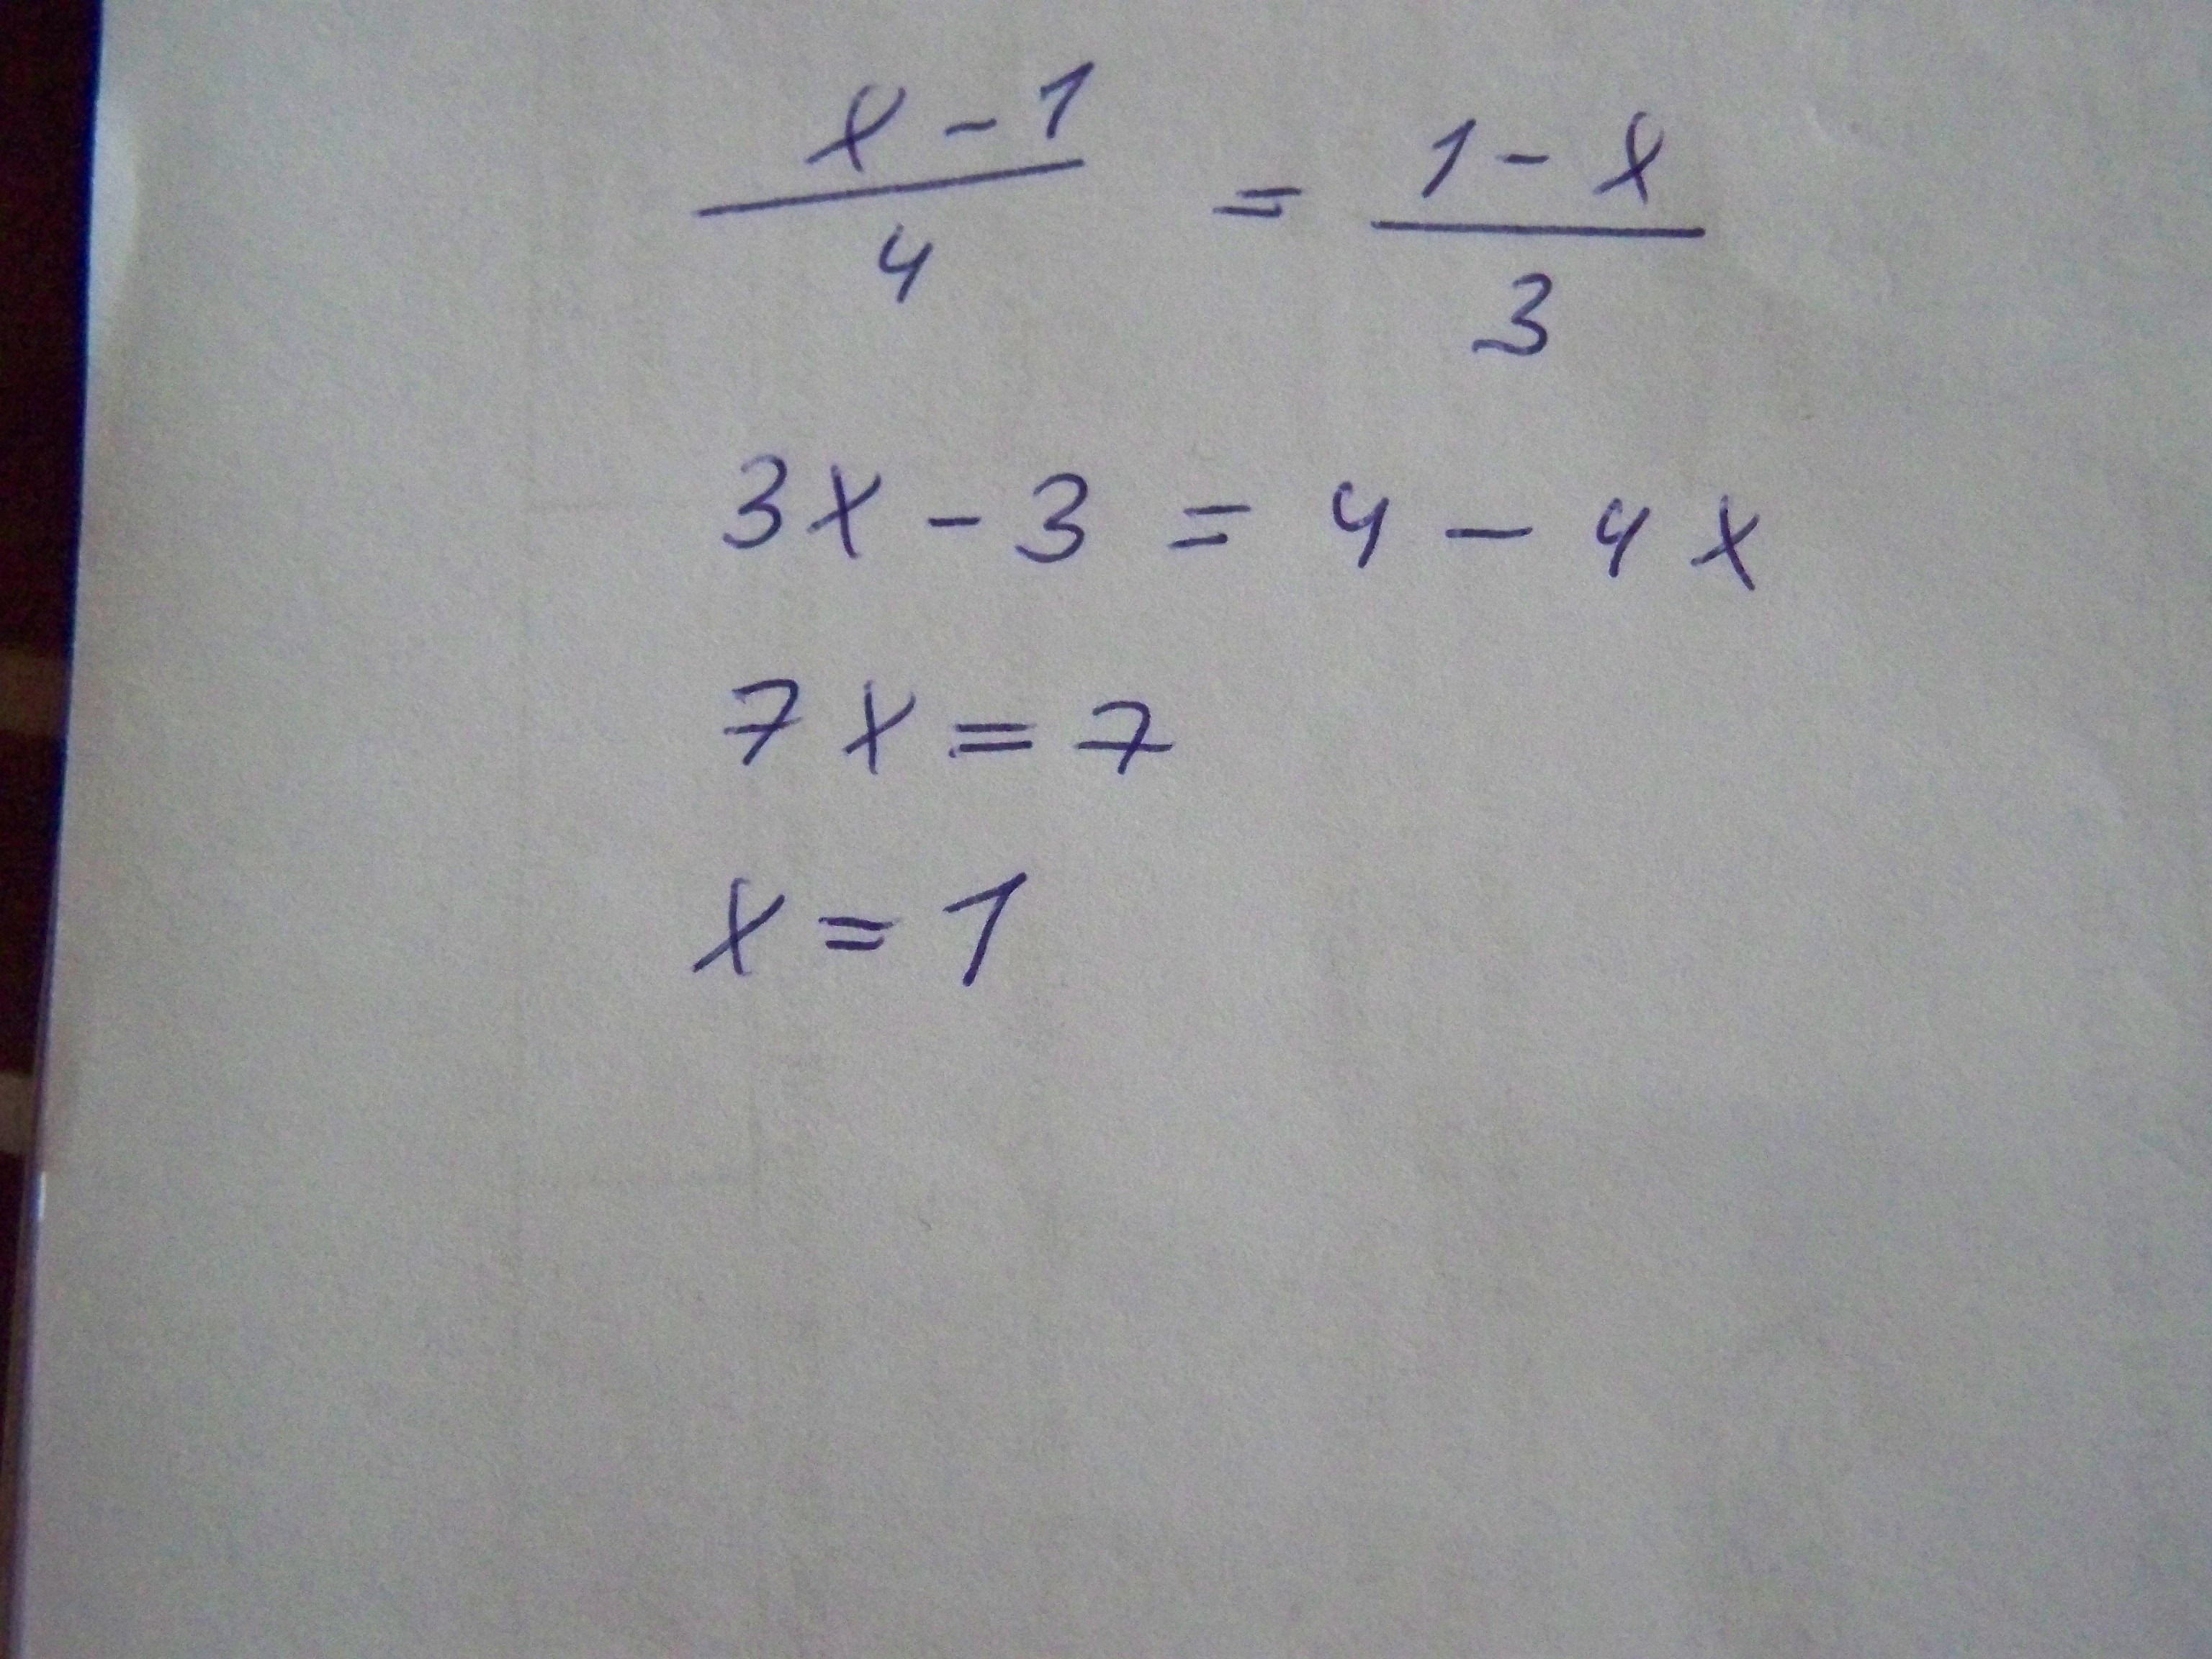 x - 1 / 4 = 1 - x / 3
3x - 3 = 4 - 4x
7x = 7
x = 1